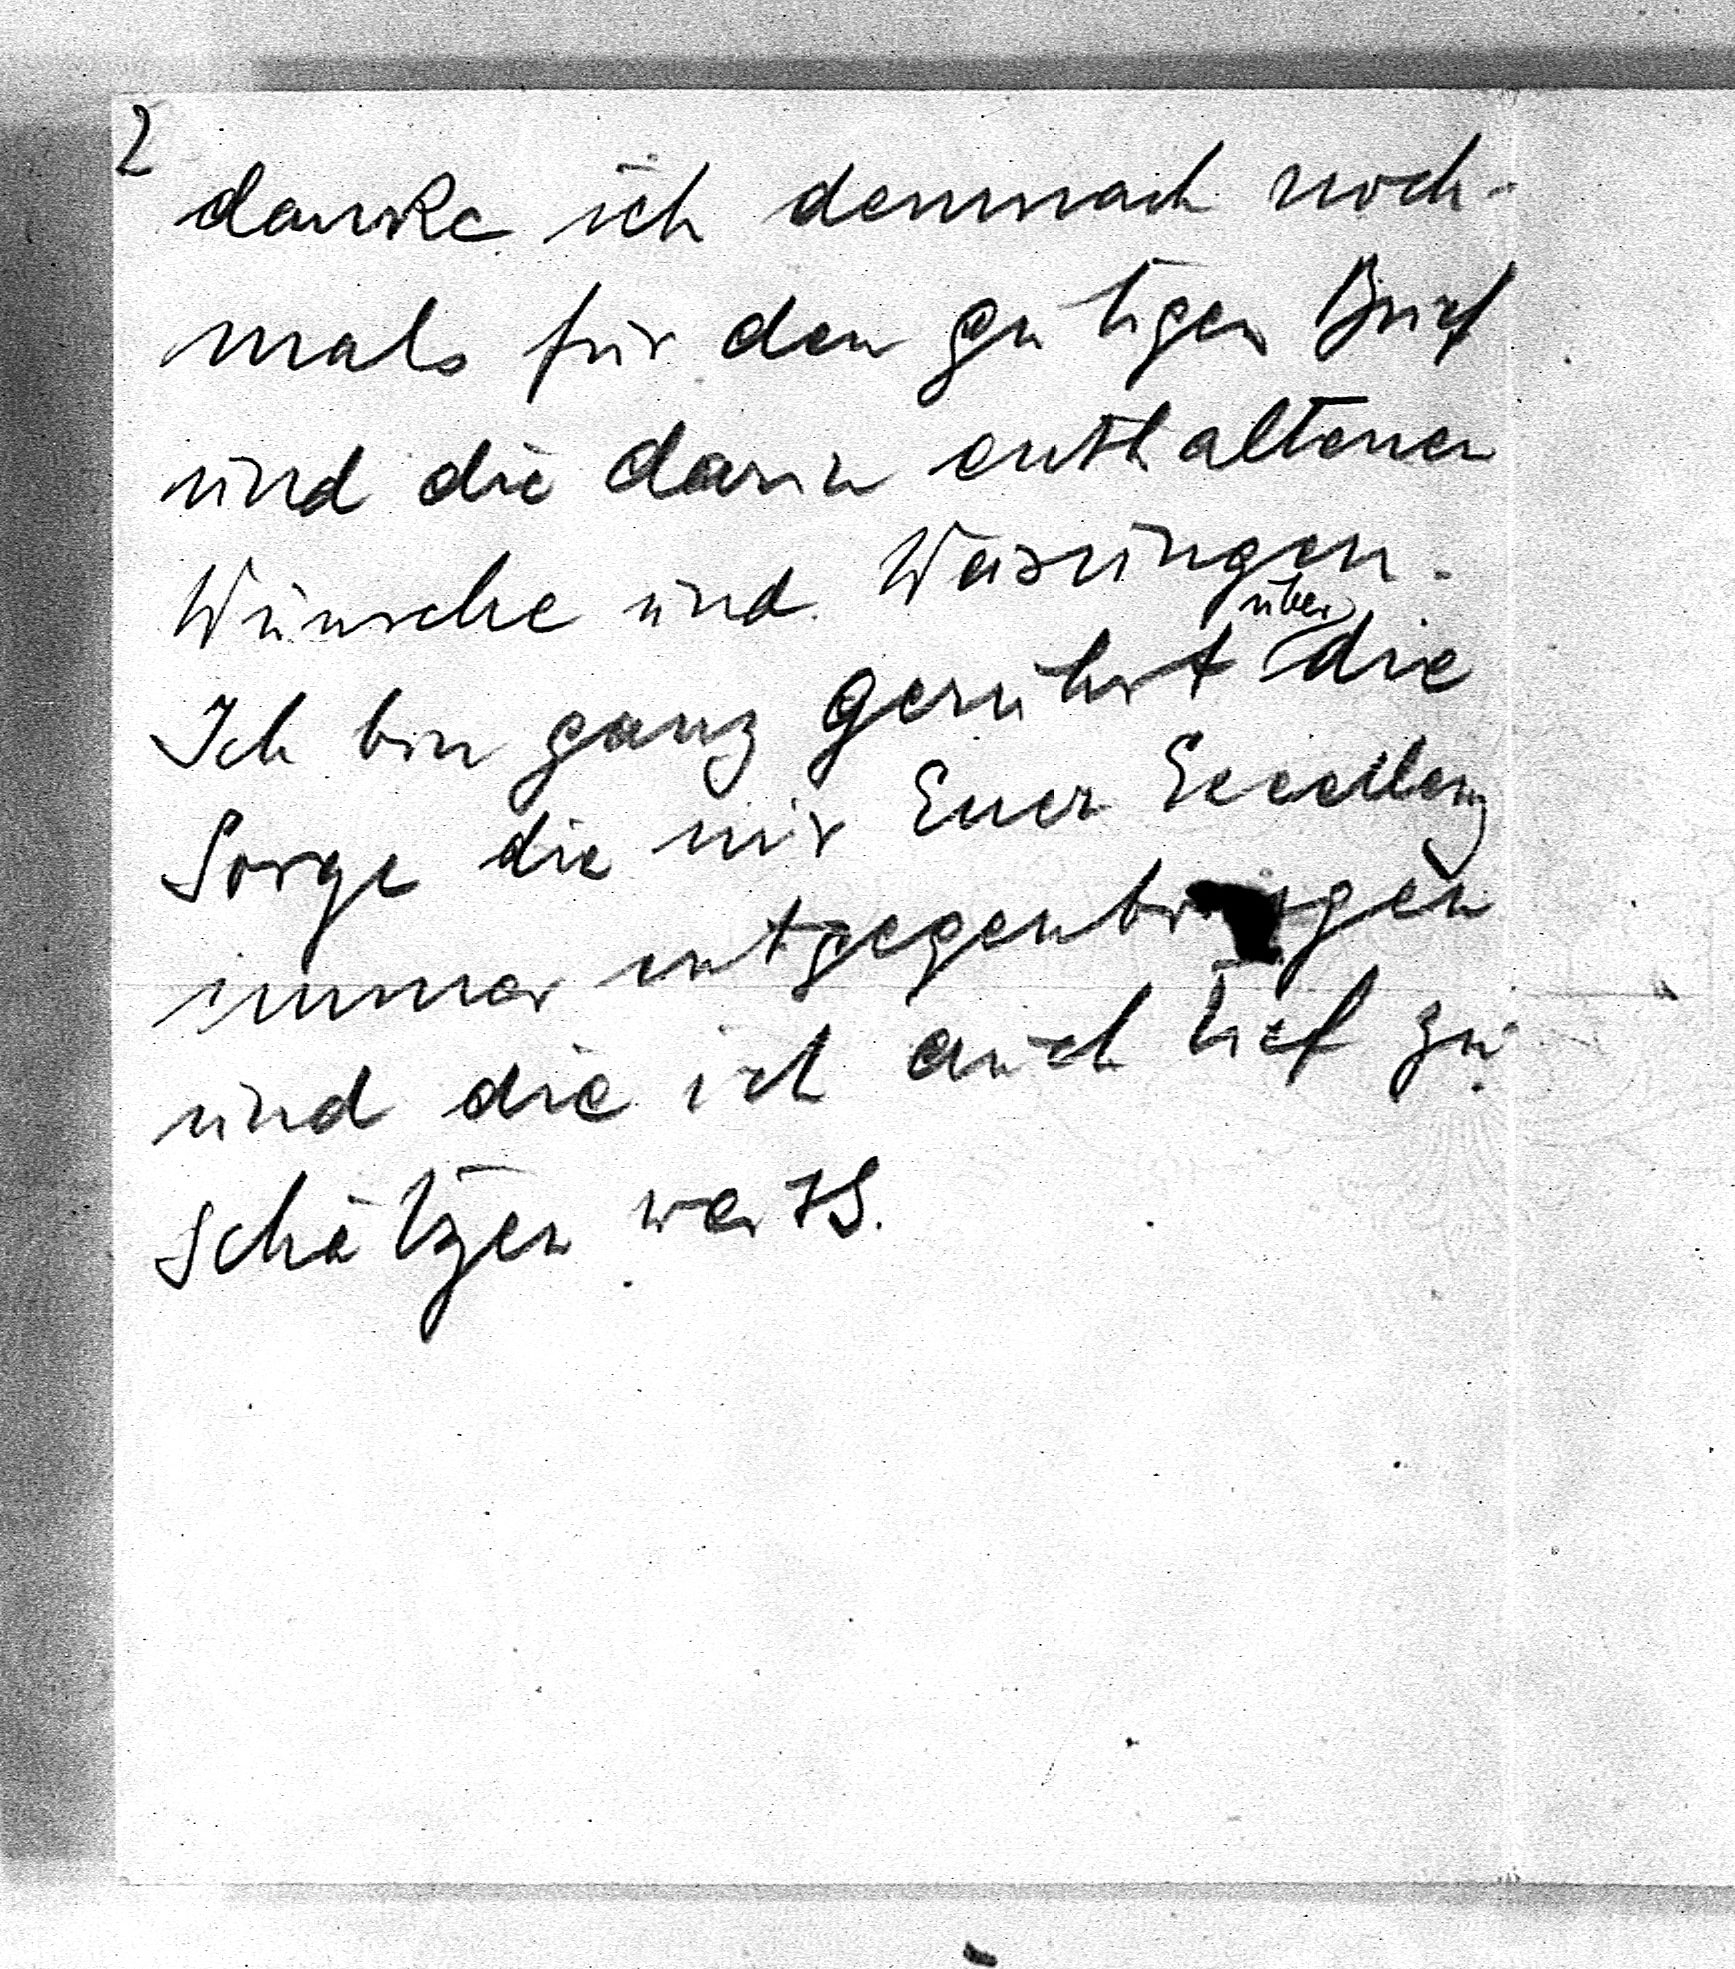 2
danke ich demnach noch-
mals für den gütigen Brief
und die darin enthaltenen
Wünsche und Weisungen.
Ich bin ganz gerührt über die
Sorge die mir Euer Excellenz
immer entgegenbringen
und die ich auch tief zu
schätzen weiss.